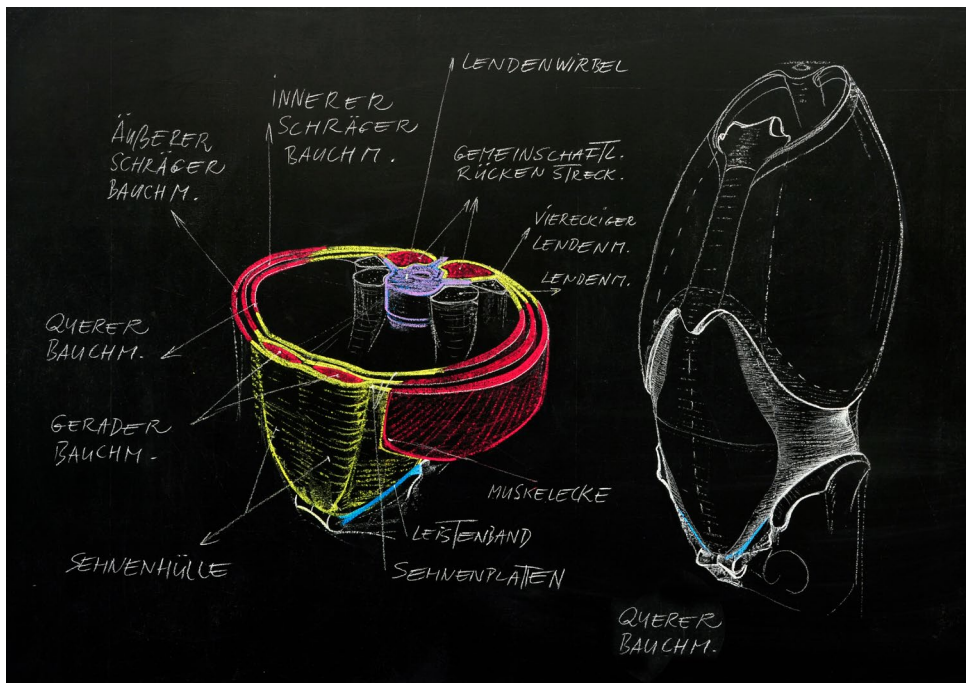 LENDENWIRBEL
INNERER
SCHRÄGER
BAUCHM.
ÄUßERER
SCHRÄGER
BAUCHM.
GEMEINSCHAFTL.
RÜCKENSTRECK.
VIERECKIGER
LENDENM.
LENDENM.
QUERER
BAUCHM.
GERADER
BAUCHM.
MUSKELECKE
LEISTENBAND
SEHNENHÜLLE
SEHNENPLATTEN
QUERER
BAUCHM.